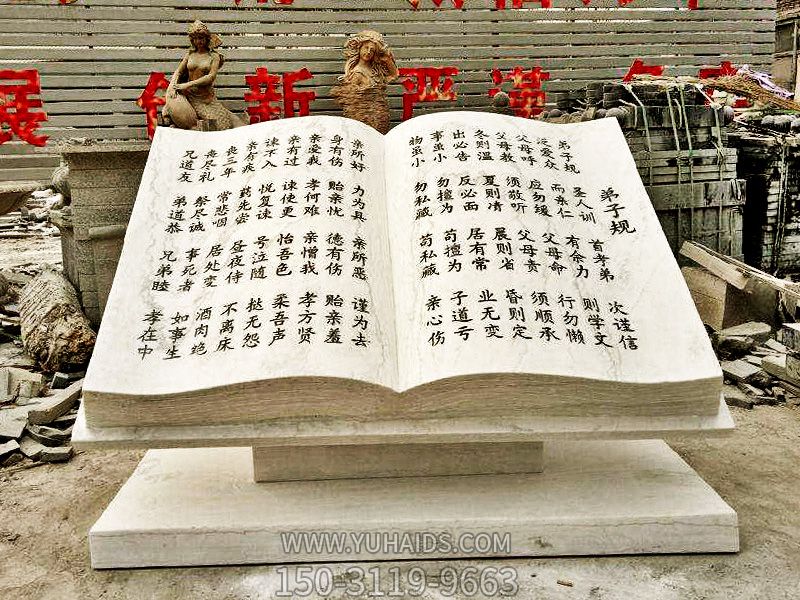 展 创新 严谨
弟子规
弟子规 圣人训 首孝弟 次谨信
泛爱众 而亲仁 有余力 则学文
父母呼 应勿缓 父母命 行勿懒
父母教 须敬听 父母责 须顺承
冬则温 夏则凊 晨则省 昏则定
出必告 反必面 居有常 业无变
事虽小 勿擅为 苟擅为 子道亏
物虽小 勿私藏 苟私藏 亲心伤
亲所好 力为具 亲所恶 谨为去
身有伤 贻亲忧 德有伤 贻亲羞
亲爱我 孝何难 亲憎我 孝方贤
亲有过 谏使更 怡吾色 柔吾声
谏不入 悦复谏 号泣随 挞无怨
亲有疾 药先尝 昼夜侍 不离床
丧三年 常悲咽 居处变 酒肉绝
丧尽礼 祭尽诚 事死者 如事生
兄道友 弟道恭 兄弟睦 孝在中
WWW.YUHAIDS.COM
150-3119-9663